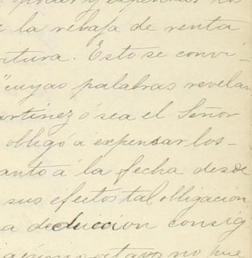 la rebaja de renta
Esto se convi-
cuyas palabras revelan
artinez ó sea el Señor
obligó a expensar los-
anto á la fecha desde
sus efectos tal obligacion
a deduccion consig
no fue